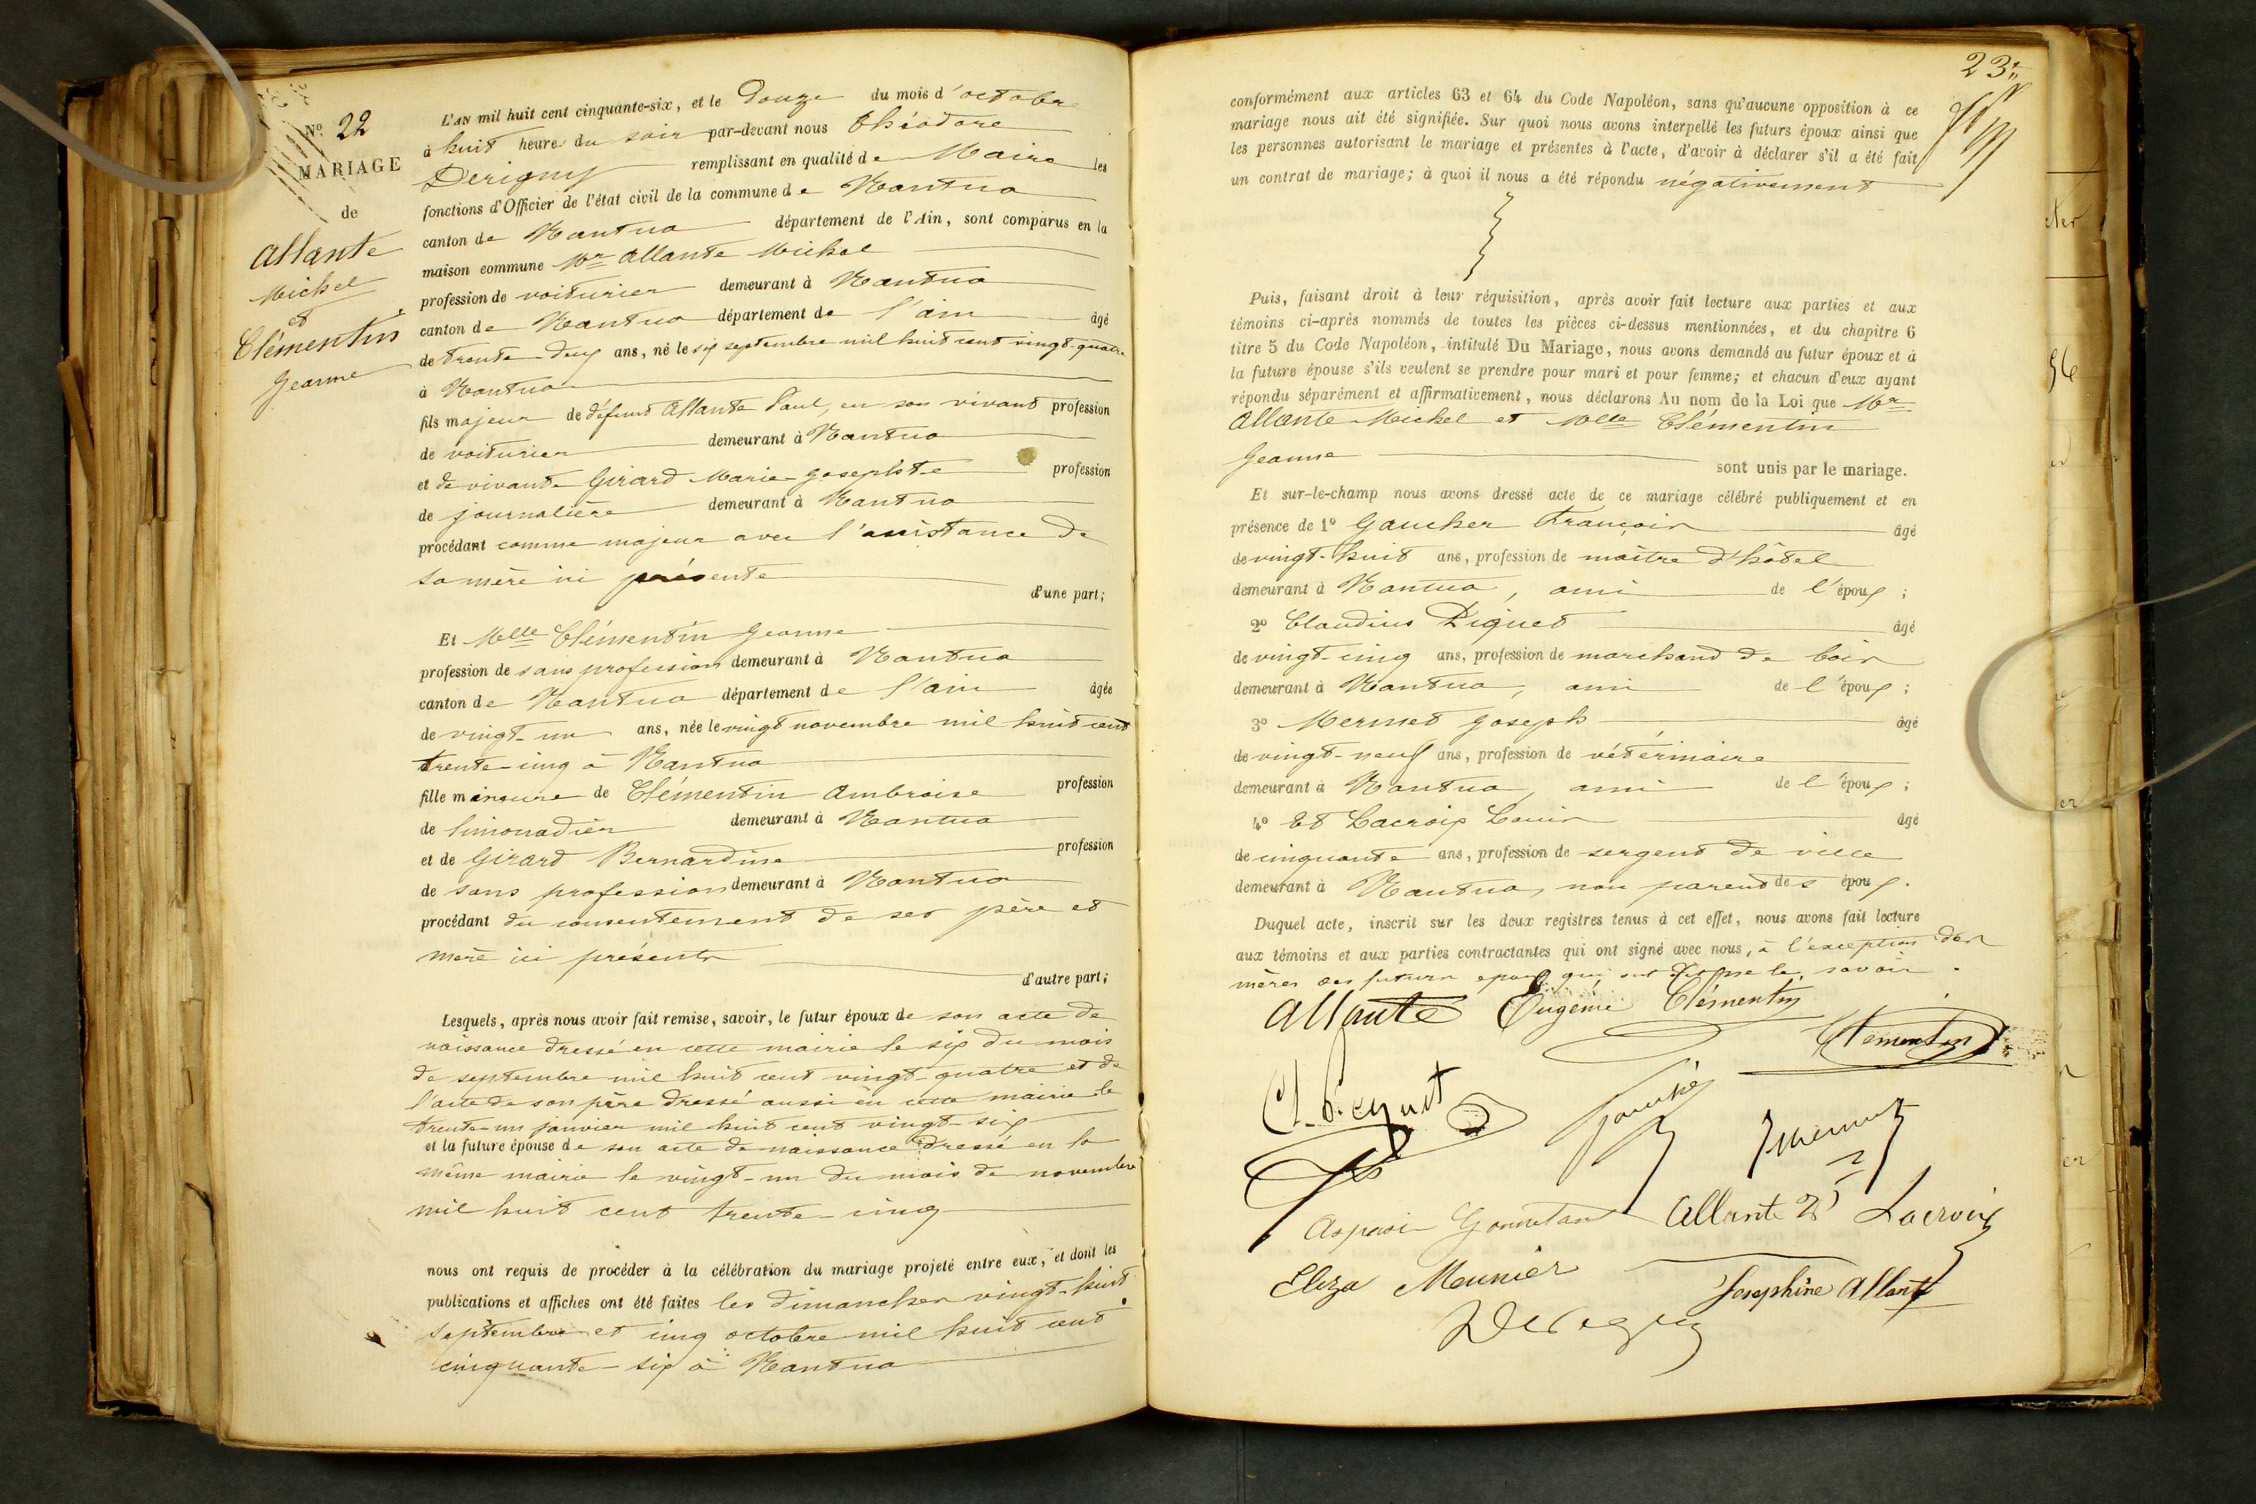 Nº 22
MARIAGE
de
Allante
Michel
et
Clémentin
Jeanne
L'AN mil huit cent cinquante-six, et le Douze du mois d'octobre
à huit heure du soir par-devant nous Théodore
Derigny remplissant en qualité de Maire les
fonctions d'Officier de l'état civil de la commune de Nantua
canton de Nantua département de l'Ain, sont comparus en la
maison commune Mr Allante Michel
profession de voiturier demeurant à Nantua
canton de Nantua département de l'ain âgé
de trente-deux ans, né le six septembre mil huit cent vingt-quatre
à Nantua
fils majeur de défunt Allante Paul, en son vivant profession
de voiturier demeurant à Nantua
et de vivante Girard Marie-Josephte profession
de journalière demeurant à Nantua
procédant comme majeur avec l'assistance de
sa mère ici présente
d'une part;
Et Melle Clémentin Jeanne
profession de sans profession demeurant à Nantua
canton de Nantua département de l'ain âgée
de vingt-un ans, née le vingt novembre mil huit cent
trente-cinq à Nantua
fille mineure de Clémentin Ambroise profession
de limonadier demeurant à Nantua
et de Girard Bernardine profession
de sans profession demeurant à Nantua
procédant du consentement de ses père et
mère ici présents
d'autre part;
Lesquels, après nous avoir fait remise, savoir, le futur époux de son acte de
naissance dressé en cette mairie le six du mois
de septembre mil huit cent vingt-quatre et de
l'acte de son père dressé aussi en cette mairie le
trente-un janvier mil huit cent vingt-six
et la future épouse de son acte de naissance dressé en la
même mairie le vingt-un du mois de novembre
mil huit cent trente-cinq
nous ont requis de procéder à la célébration du mariage projeté entre eux, et dont les
publications et affiches ont été faites les dimanches vingt-huit
septembre et cinq octobre mil huit cent
cinquante-six à Nantua
23
conformément aux articles 63 et 64 du Code Napoléon, sans qu'aucune opposition à ce
mariage nous ait été signifiée. Sur quoi nous avons interpellé les futurs époux ainsi que
les personnes autorisant le mariage et présentes à l'acte, d'avoir à déclarer s'il a été fait
un contrat de mariage; à quoi il nous a été répondu négativement
Puis, faisant droit à leur réquisition, après avoir fait lecture aux parties et aux
témoins ci-après nommés de toutes les pièces ci-dessus mentionnées, et du chapitre 6
titre 5 du Code Napoléon, intitulé Du Mariage, nous avons demandé au futur époux et à
la future épouse s'ils veulent se prendre pour mari et pour femme; et chacun d'eux ayant
répondu séparément et affirmativement, nous déclarons Au nom de la Loi que Mr
Allante Michel et Melle Clémentin
Jeanne sont unis par le mariage.
Et sur-le-champ nous avons dressé acte de ce mariage célébré publiquement et en
présence de 1º Gaucher François âgé
de vingt-huit ans, profession de maître d'hôtel
demeurant à Nantua, ami de l'époux;
2º Claudius Piquet âgé
de vingt-cinq ans, profession de marchand de bois
demeurant à Nantua, ami de l'époux;
3º Mermet Joseph âgé
de vingt-neuf ans, profession de vétérinaire
demeurant à Nantua, ami de l'époux;
4º Et Lacroix Louis âgé
de cinquante ans, profession de sergent de ville
demeurant à Nantua, non parent des époux.
Duquel acte, inscrit sur les deux registres tenus à cet effet, nous avons fait lecture
aux témoins et aux parties contractantes qui ont signé avec nous, à l'exception des
mères des futurs époux qui ont dit ne le savoir.
Allante Eugénie Clémentin
Clémentin
Cl. Piquet Gaucher
J Mermet
Allante Lacroix
Eliza Meunier Josephine Allante
Derigny